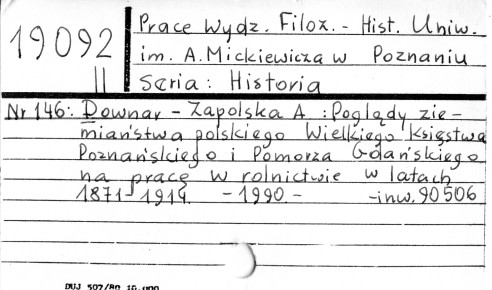 19092
II
Prace Wydz. Filoz. - Hist. Uniw.
im. A. Mickiewicza w Poznaniu
Seria: Historia
Nr 146: Downar - Zapolska A.: Poglądy zie-
miaństwa polskiego Wielkiego Księstwa
Poznańskiego i Pomorza Gdańskiego
na pracę w rolnictwie w latach
1871-1914. - 1990 - - inw. 90506
DUJ 507/80 10.000